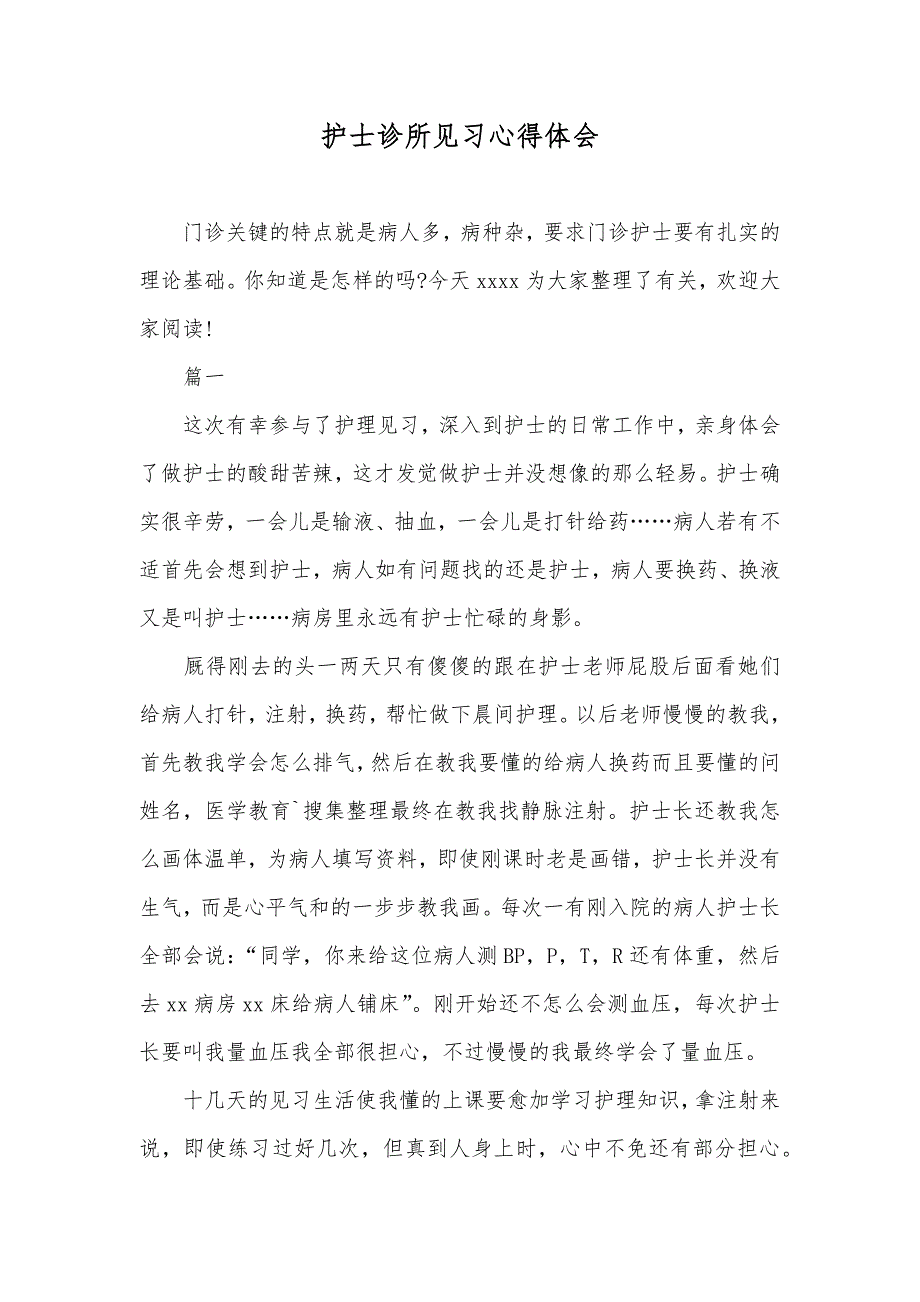 护士诊所见习心得体会
门诊关键的特点就是病人多，病种杂，要求门诊护士要有扎实的
理论基础。你知道是怎样的吗?今天 xxxx 为大家整理了有关，欢迎大
家阅读!
篇一
这次有幸参与了护理见习，深入到护士的日常工作中，亲身体会
了做护士的酸甜苦辣，这才发觉做护士并没想像的那么轻易。护士确
实很辛劳，一会儿是输液、抽血，一会儿是打针给药……病人若有不
适首先会想到护士，病人如有问题找的还是护士，病人要换药、换液
又是叫护士……病房里永远有护士忙碌的身影。
厩得刚去的头一两天只有傻傻的跟在护士老师屁股后面看她们
给病人打针，注射，换药，帮忙做下晨间护理。以后老师慢慢的教我，
首先教我学会怎么排气，然后在教我要懂的给病人换药而且要懂的问
姓名，医学教育`搜集整理最终在教我找静脉注射。护士长还教我怎
么画体温单，为病人填写资料，即使刚课时老是画错，护士长并没有
生气，而是心平气和的一步步教我画。每次一有刚入院的病人护士长
全部会说：“同学，你来给这位病人测 BP，P，T，R 还有体重，然后
去 xx 病房 xx 床给病人铺床”。刚开始还不怎么会测血压，每次护士
长要叫我量血压我全部很担心，不过慢慢的我最终学会了量血压。
十几天的见习生活使我懂的上课要愈加学习护理知识，拿注射来
说，即使练习过好几次，但真到人身上时，心中不免还有部分担心。